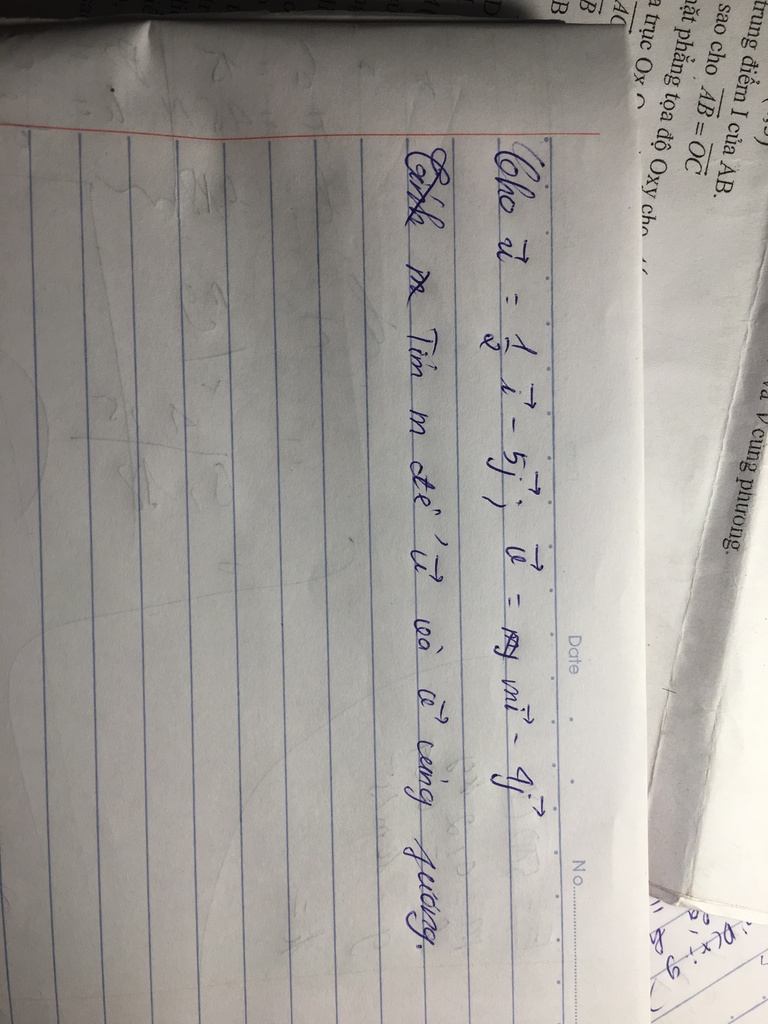 trung điểm I của AB.
sao cho AB = OC
mặt phẳng tọa độ Oxy cho
trục Ox
và v cùng phương.
Date
No
Cho u⃗ = 1/2 i⃗ - 5j⃗; v⃗ = mi⃗ - 4j⃗
Tìm m để u⃗ và v⃗ cùng phương.